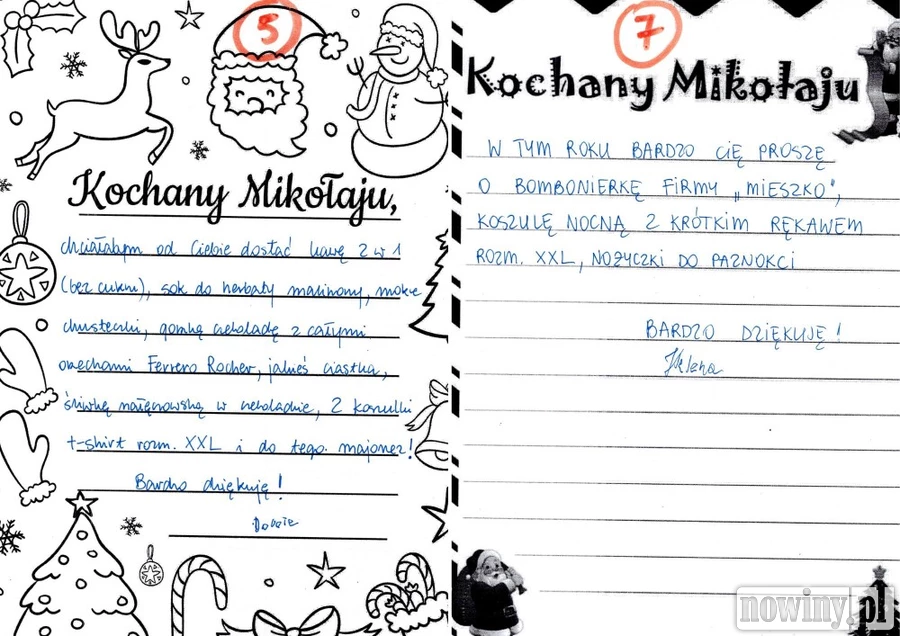 5
Kochany Mikołaju,
chciałabym od Ciebie dostać kawę 2 w 1
(bez cukru), sok do herbaty malinowy, mokre
chusteczki, gorzką czekoladę z całymi
orzechami Ferrero Rocher, jakieś ciastka,
śliwkę nałęczowską w czekoladzie, 2 koszulki
t-shirt rozm. XXL i do tego majonez!
Bardzo dziękuję!
7
Kochany Mikołaju
W TYM ROKU BARDZO CIĘ PROSZĘ
O BOMBONIERKĘ FIRMY „MIESZKO”,
KOSZULĘ NOCNĄ Z KRÓTKIM RĘKAWEM
ROZM. XXL, NOŻYCZKI DO PAZNOKCI
BARDZO DZIĘKUJĘ!
Helena
nowiny.pl